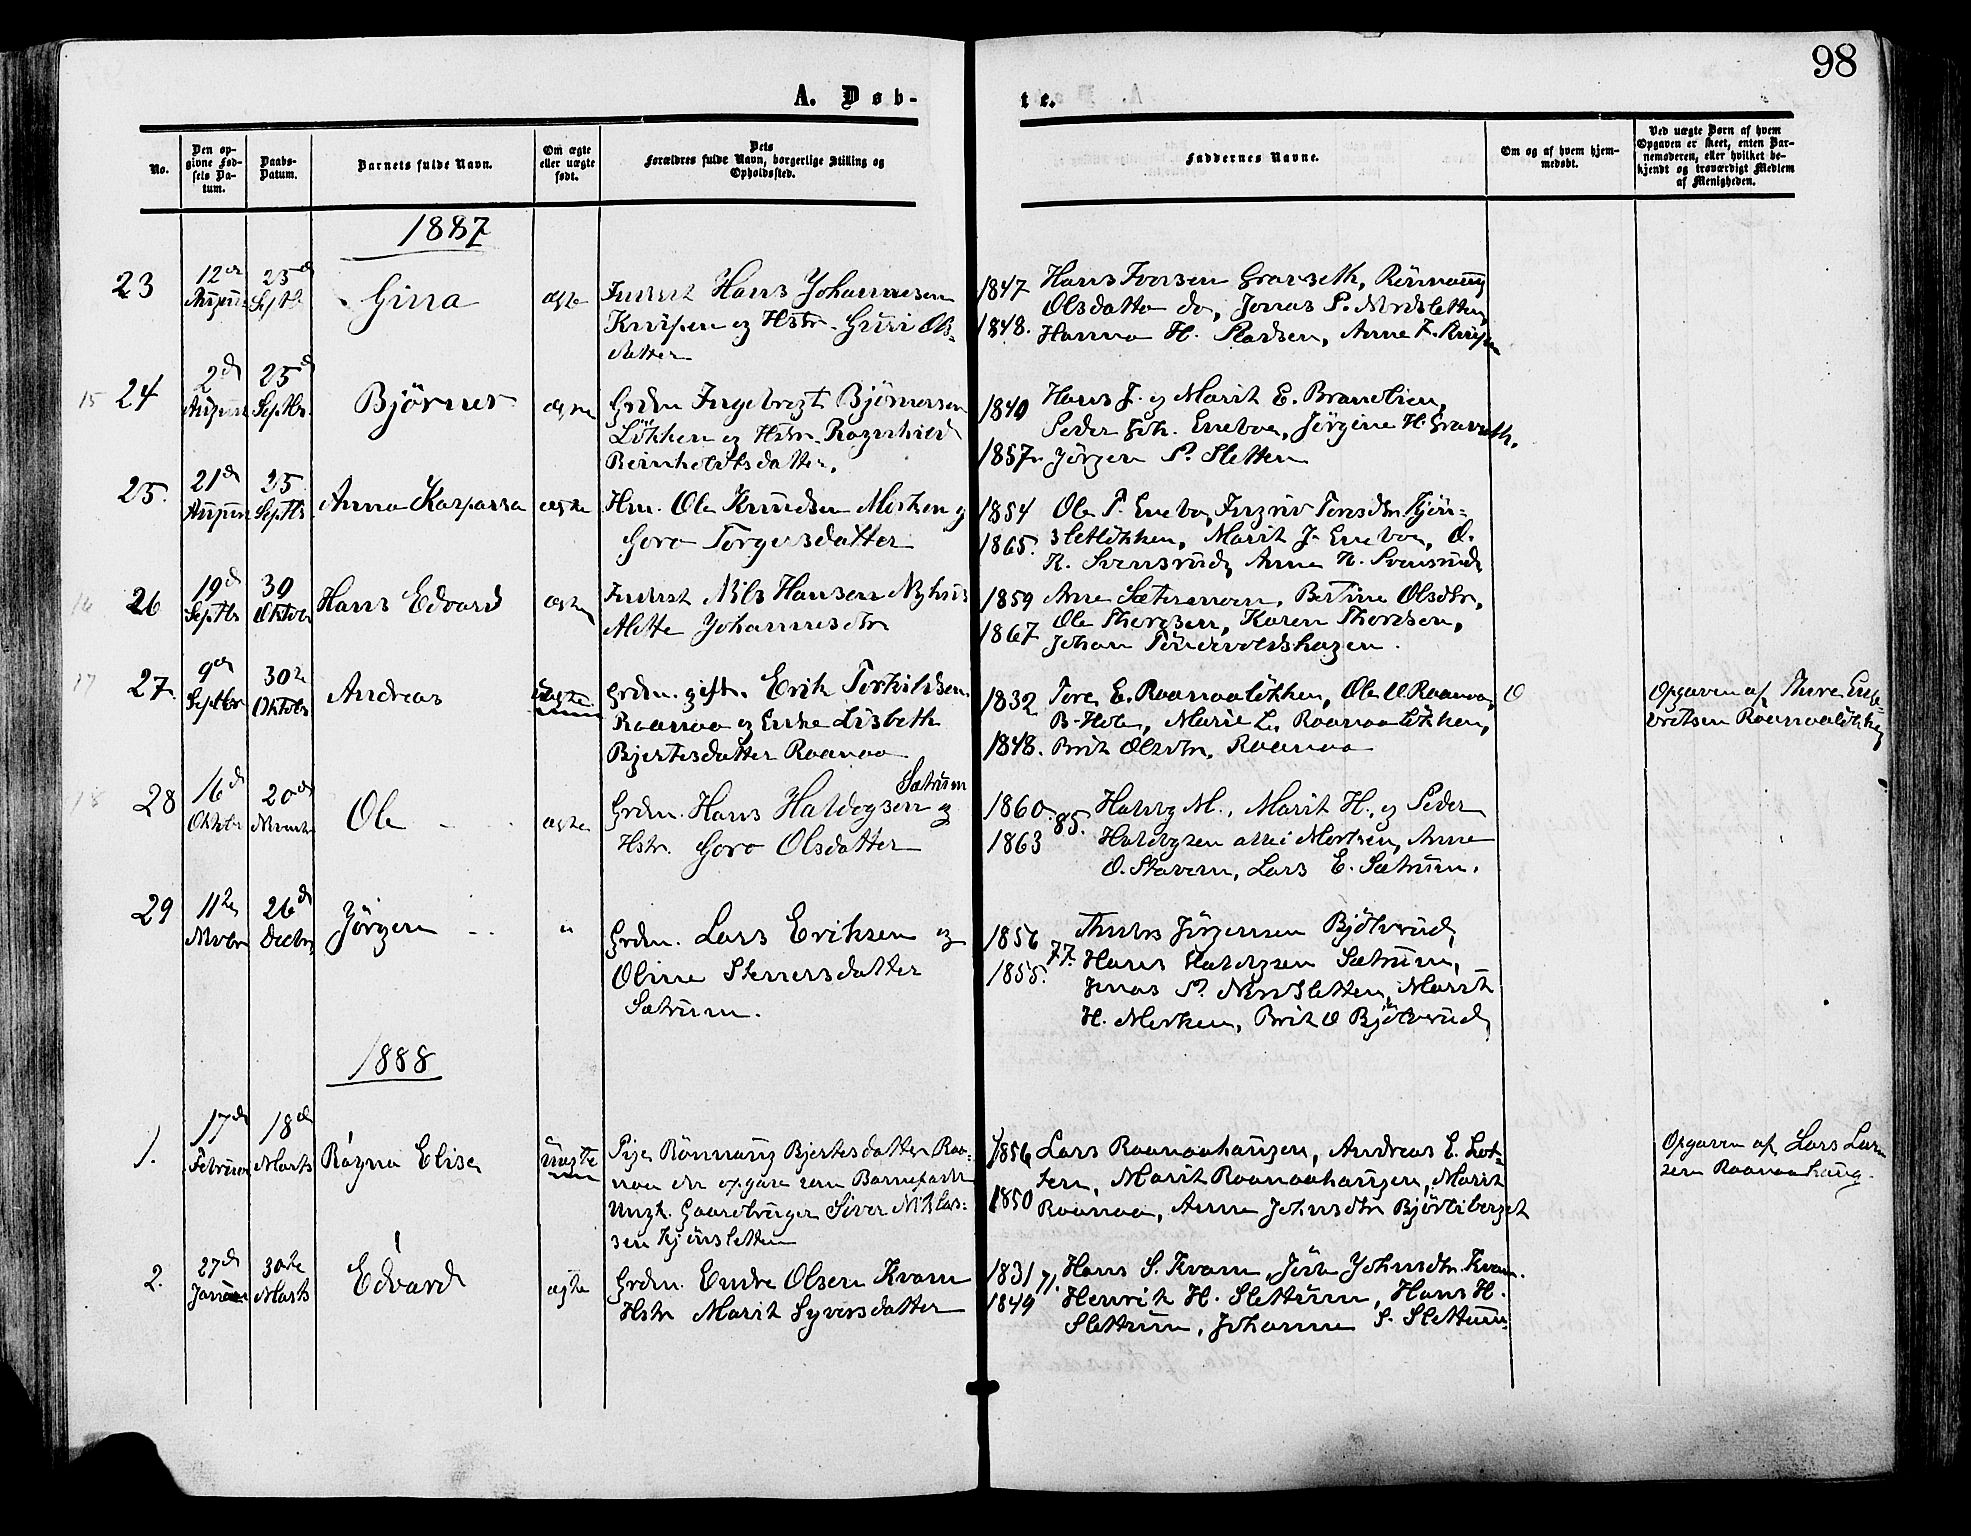 98
A. Døb-
te.
No.
Den op-
givne Fød-
sels Da-
tum.
Daabs-
Datum.
Barnets fulde Navn.
Om ægte
eller uægte
født.
Dets
Forældres fulde Navn, borgerlige Stilling og
Opholdssted.
Faddernes Navne.
Om og af hvem hjem-
medøbt.
Ved uægte Børn af hvem
Opgaven er skeet, enten Bar-
nemoderen, eller hvilket be-
kjendt og troværdigt Medlem
af Menigheden.
1887
23
12te
August
25d
Septbr
Gina
ægte
Inderst Hans Johannesen
og Hstr. Guri Ols-
datter
1847
1848.
Hans Iversen Gravseth, Rönnaug
Olsdatter do, Jonas P. Nordsletten,
Hanna H. Pladsen, Anne F.
15
24
2d
August
25d
Septbr.
Björner
ægte
Grdm Ingebregt Björnersen
Lökken og Hstr. Ragnhild
Bernhardtsdatter.
1840
1857.
Hans J. og Marit E. Brandlien,
Peder Joh. Enebo, Jörgine H. Gravseth,
Jörgen P. Sletten
25.
21d
August
25
Septbr
Anna Kaspara
ægte
Hm. Ole Knudsen Morken og
Goro Torgersdatter
1854
1865.
Ole T. Enebo, Ingrid Toresdtr Kjön-
sletlökken, Marit J. Enebo, O.
K. Svensrud, Anne K. Svensrud
16
26
19d
Septbr
30
Oktobr
Hans Edvard
ægte
Inderst Nils Hansen Nyhus
Alette Johannesdtr
1859
1867
Anne Sætermoen, Bertine Olsdtr,
Ole Thoresen, Karen Thoresen,
Johan Töndevoldshagen.
17
27.
9de
Septbr
30te
Oktobr
Andreas
uægte
Grdm. gift. Erik Torkildsen
Raanaa og Enke Lisbeth
Bjertesdatter Raanaa
1832
1848.
Tore E. Raanaalökken, Ole O Raanaa,
B. Hole, Marie L. Raanaalökken,
Brit Olsdtr. Raanaa
O
Opgaven af Thore Enge-
bretsen Raanaalökken
18
28
16d
Oktbr
20de
Novmbr
Ole
ægte
Sætrum
Grdm. Hans Haldogsen og
Hstr. Goro Olsdatter
1860
1863
85.
Haldog M., Marit H. og Peder
Haldogsen alle i Morken, Anne
O. Stavern, Lars E. Sætrum.
29
11te
Novbr
26d
Decbr
Jörgen
"
Grdm. Lars Eriksen og
Oline Stenersdatter
Sætrum.
1856
1855.
77.
Anders Jörgensen Bjölverud,
Hans Haldogsen Sætrum,
Jonas P. Nordsletten, Marit
H. Morken, Brit O Bjölverud,
1888
1.
17de
Februar
18de
Marts
Ragna Elise
uægte
Pige Rönnaug Bjertesdatter Raa-
naa der opgave som Barnefader
Ungk. Gaardbruger Siver Niklas-
sen Kjönsletten
1856
1850
Lars Raanaahaugen, Andreas E. Lok-
ken, Marit Raanaahaugen, Marit
Raanaa, Anne Johnsdtr Björliberget
Opgaven af Lars Lar-
sen Raanaahaug.
2.
27d
Januar
30te
Marts
Edvard
ægte
Grdm. Endre Olsen Kvam
Hstr Marit Syversdatter
1831
1849
71.
Hans S. Kvam, Johnsdtr. Kvam.
Henrik H. Slettum, Hans H.
Slettum, Johanne S. Slettum.